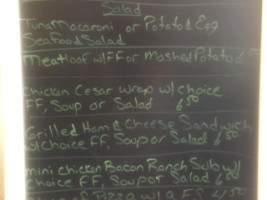 Salad
Tuna Macaroni or Potato & Egg
Seafood Salad
Meatloaf w/FF or Mashed Potato
Chicken Cesar Wrap w/ choice
FF, Soup or Salad 6 50
Grilled Ham & Cheese Sandwich
w/choice FF, Soup or Salad 6 50
mini chicken Bacon Ranch Sub w/
choice FF, Soup or Salad 6 50
Pizza w/a FF